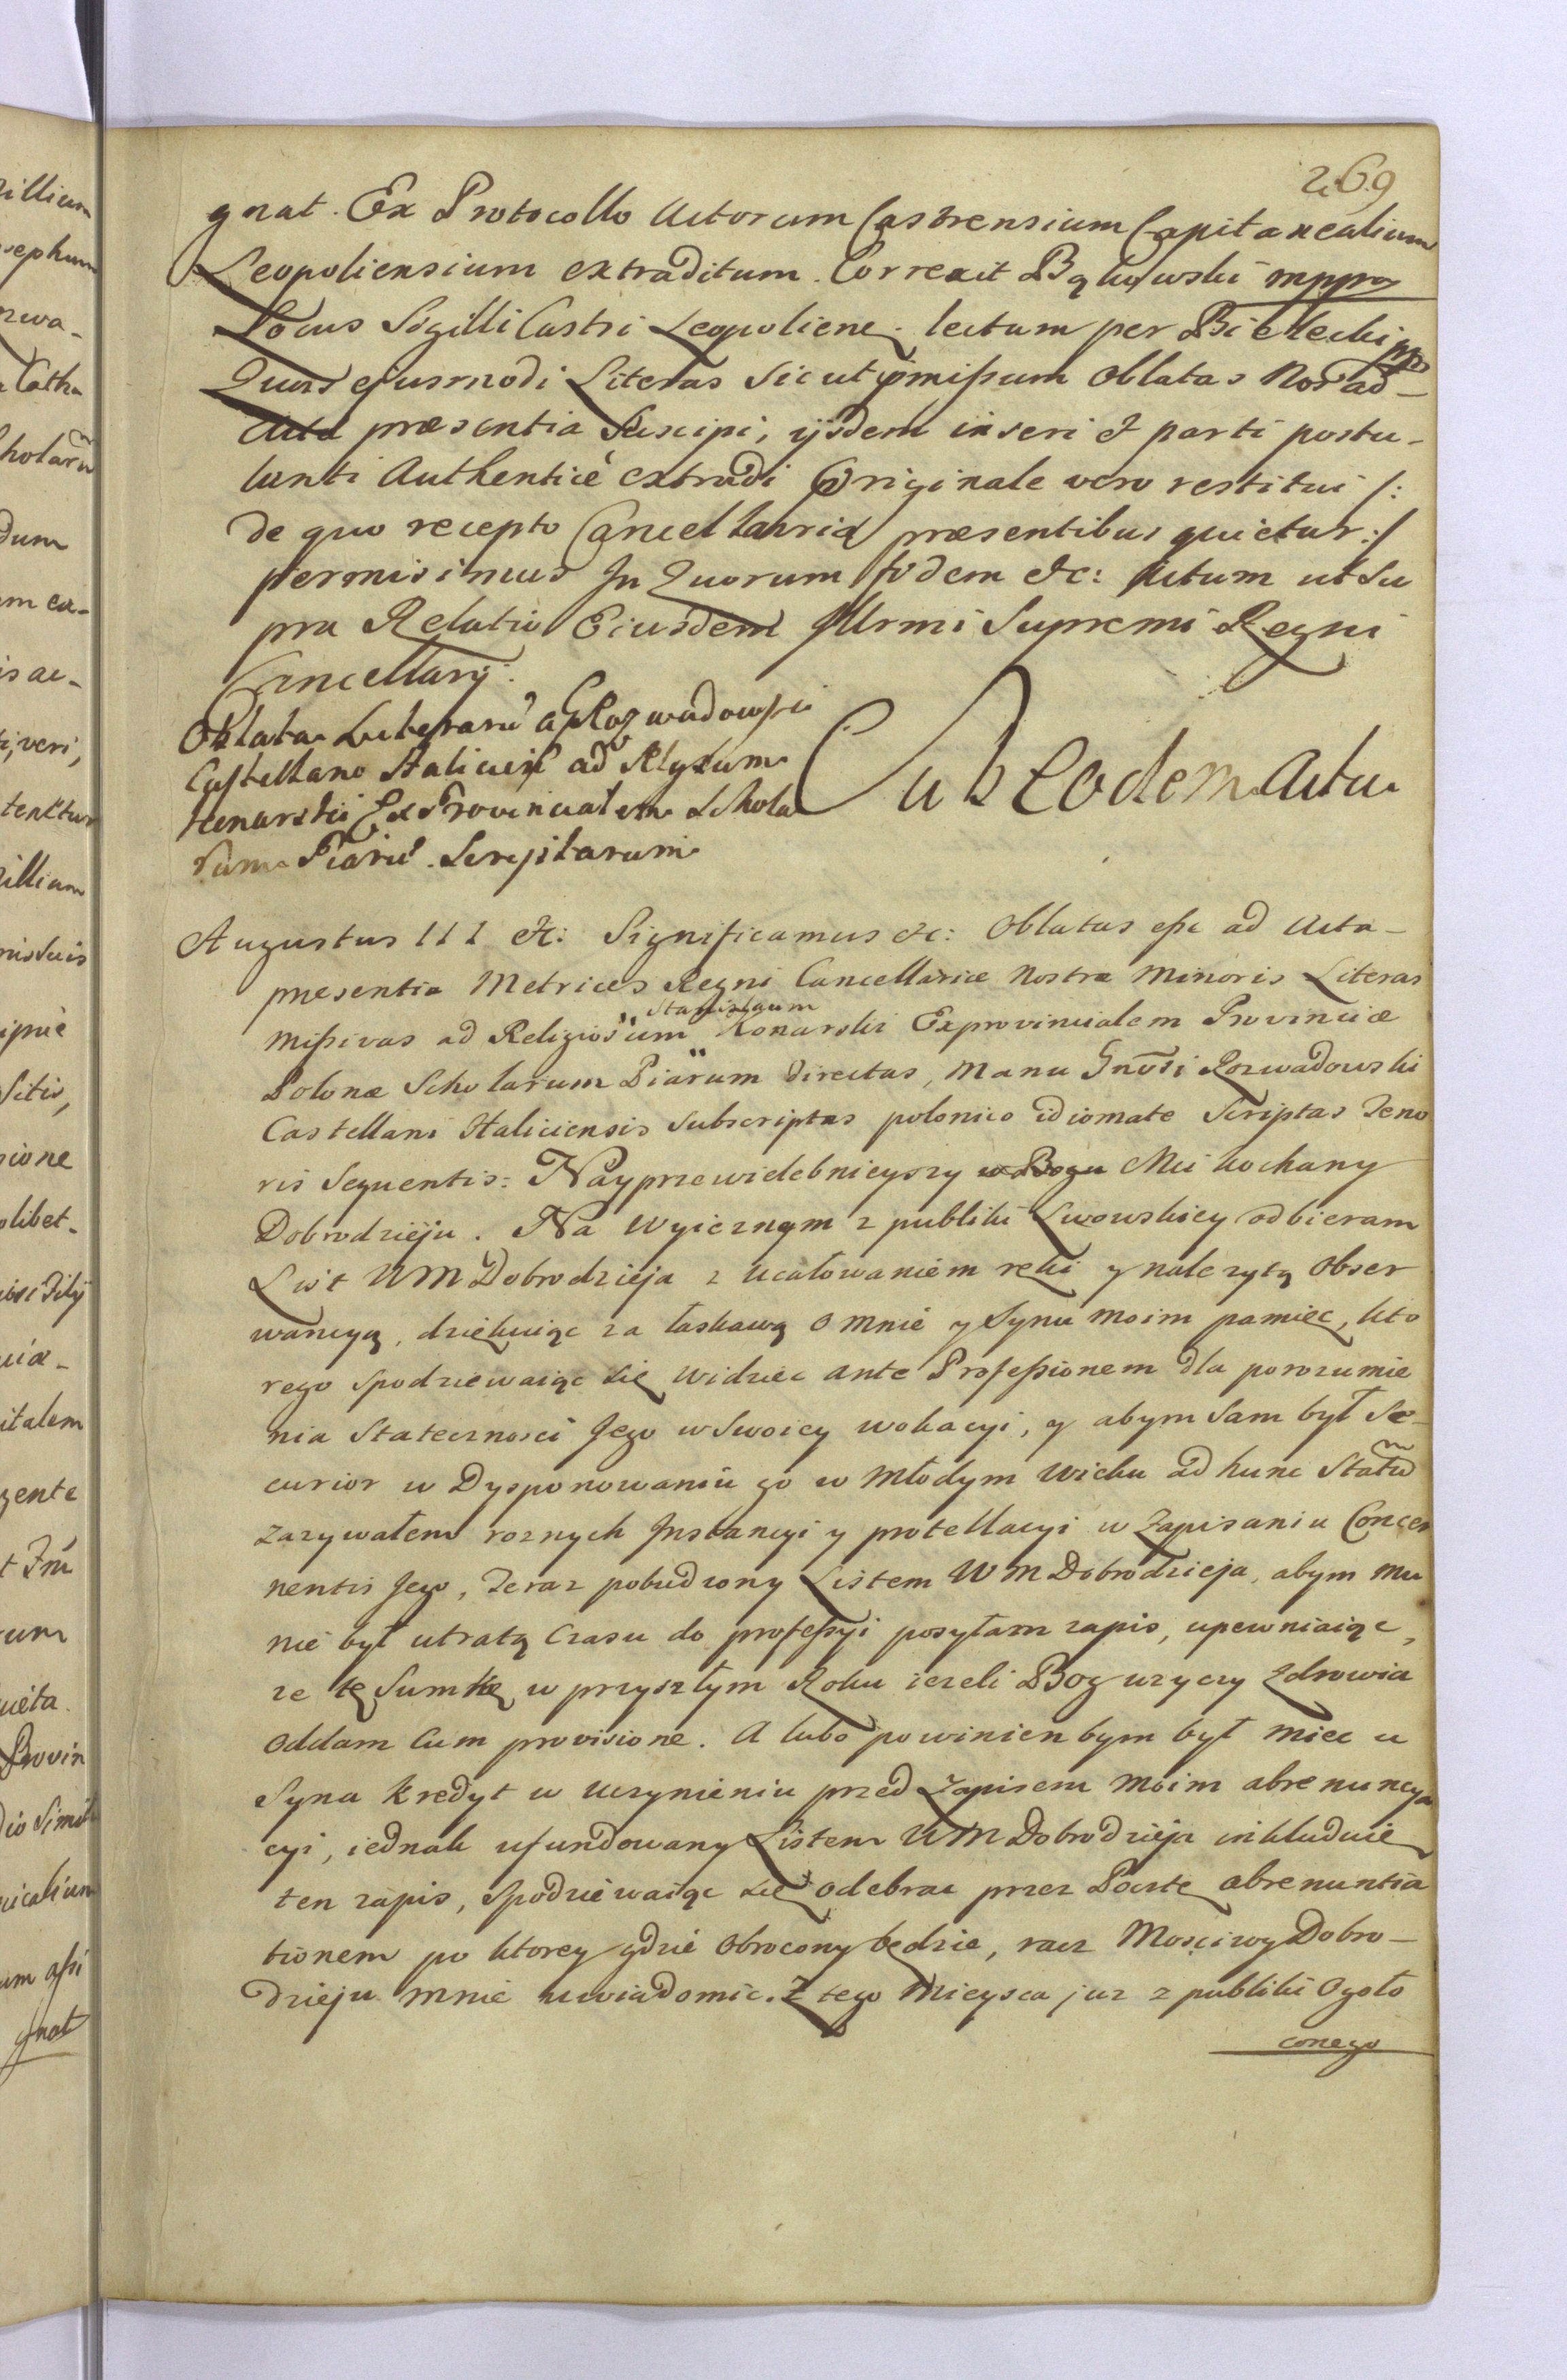 269
gnat. Ex Protocollo Actorum Castrensium Capitanealium
Leopoliensium extraditum. Correxit Bąkowski mppra
Locus Sigilli Castri Leopoliens. lectum per Bielecki mpp
Quas ejusmodi Literas Sicut pmißum Oblatas Nos ad
Acta præsentia Suscipi, ijsdem inseri et parti postu-
lanti Authenticè extradi Originale vero restitui /:
de quo recepto Cancellaria præsentibus quietur :/
permisimus In Quorum fidem etc: Actum ut Su
pra Relatio Eiusdem Illrmi Supremi Regni
Cancellarij.
Oblata Literarū a G. Rozwadowski
Castellano Haliciens ad Rlgsum
Konarski Exprovincialem Schola
rum Piarū. Scriptarum
Sub Eodem Actu
Augustus III etc: Significamus etc: Oblatas eße ad Acta-
præsentia Metrices Regni Cancellariæ Nostræ Minoris Literas
Stanislaum
mißivas ad Religiosum Konarski Exprovincialem Provinciæ
Polonæ Scholarum Piarum directas, Manu Gnosi Rozwadowski
Castellani Haliciensis Subscriptas polonico idiomate Scriptas Teno
ris Sequentis: Nayprzewielebnieyszy w Bogu Mci kochany
Dobrodzieju. Na Wyieznym z publiki Lwowskiey odbieram
List WM Dobrodzieja z ucałowaniem ręki y należytą Obser
wancyą, dziękuiąc za łaskawą o mnie y Synu moim pamięc, kto
rego Spodziewaiąc się widziec ante Profeßionem dla porozumie
nia Statecznosci Jego w Swoiey wokacyi, y abym sam był Se-
curior w Dysponowaniu go w Młodym Wieku ad hunc Statũ
zazywałem roznych Instancyi y protellacyi w Zapisaniu Concer
nentis Jego, Teraz pobudzony Listem WM Dobrodzieja, abym mu
nie był utratą Czasu do profeßyi posyłam zapis, upewniaiąc,
ze tę Sumkę w przyszłym Roku iezeli Bog uzyczy Zdrowia
Oddam Cum provisione. A lubo powinien bym był miec u
Syna kredyt w uczynieniu przed Zapisem Moim abrenuncya
cyi, iednak ufundowany Listem WM Dobrodzieja inkluduię
ten zapis, Spodziewaiąc się odebrac przez Pocztę abrenuntia
tionem po ktorey gdzie Obrocony będzie, racz Mosciwy Dobro-
dzieju mnie uwiadomic. Z tego Mieysca juz z publiki Ogoło
conego